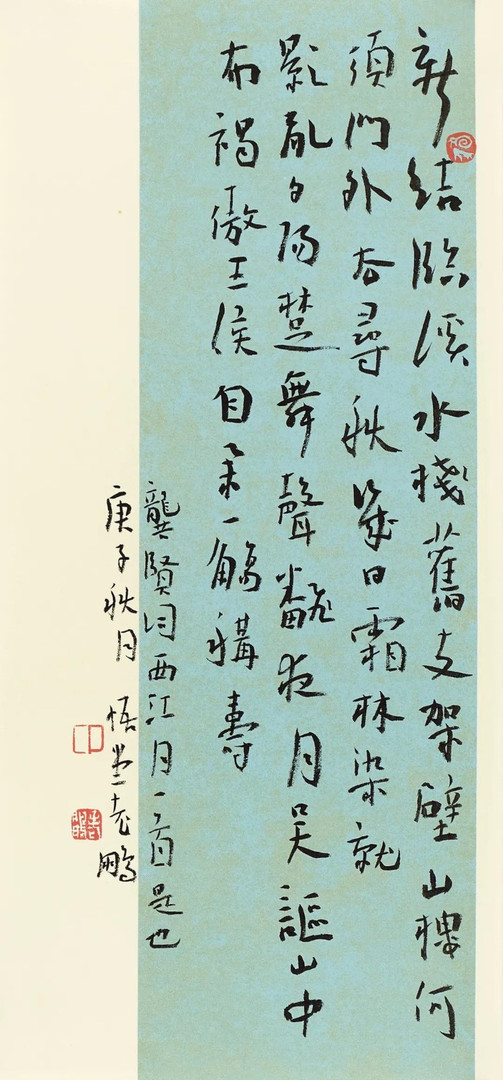 新結臨溪水棧舊支架壁山樓何
須門外去尋秋幾日霜林染就
影亂夕陽楚舞聲飜夜月吴謳山中
布褐傲王侯自举一觴稱壽
龔賢词西江月一首是也
庚子秋月 悟堂 鵬